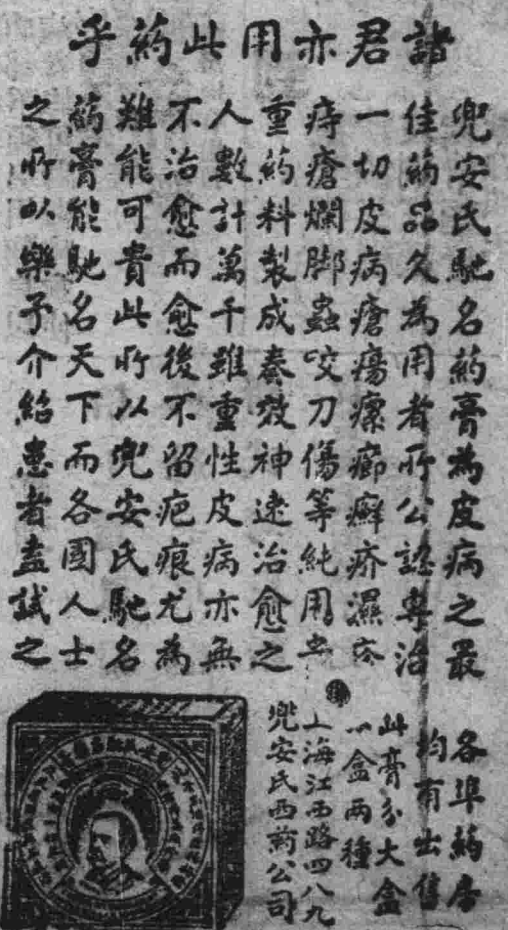 諸君亦用此药乎
兜安氏馳名药膏為皮病之最
佳药品久為用者所公認專治
一切皮病瘡瘍瘰癤癬疥濕
痔瘡爛脚蟲咬刀傷等純用
重药料製成奏效神速治愈之
人數計萬千雖重性皮病亦無
不治愈而愈後不留疤痕尤為
難能可貴此所以兜安氏馳名
药膏能馳名天下而各國人士
之所以樂予介紹患者盍試之
各埠药房
均有出售
此膏分大盒
小盒兩種
上海江西路四八九
兜安氏西药公司